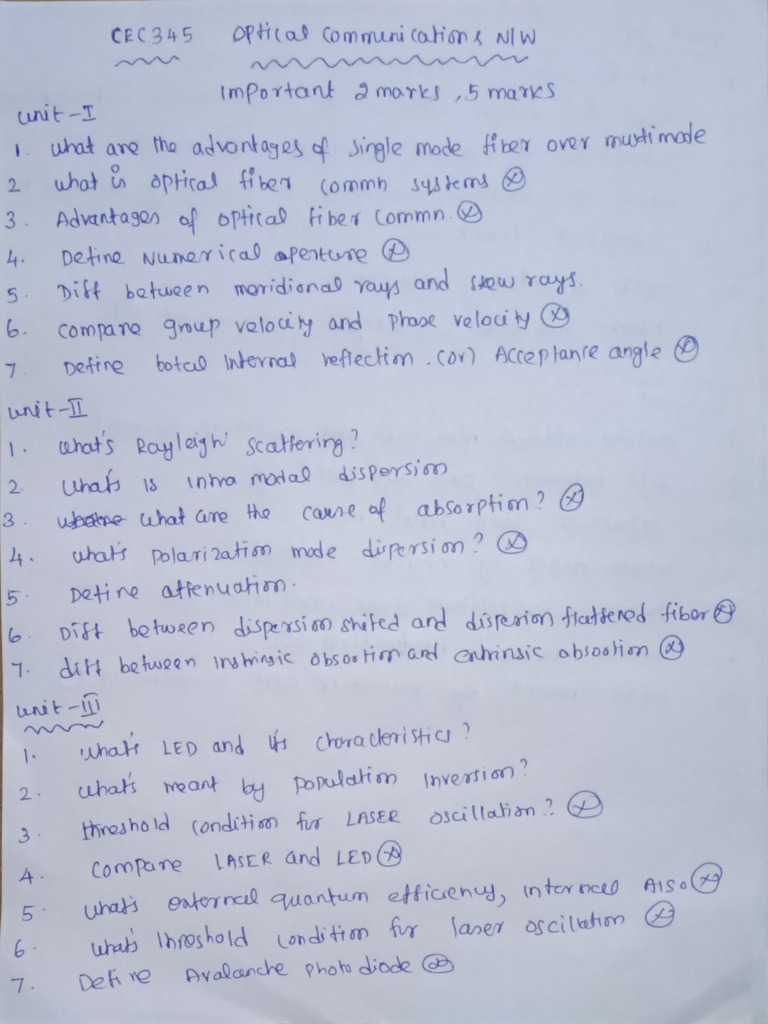 CEC345 Optical Communication & N/W
Important 2 marks, 5 marks
Unit-I
1. what are the advantages of single mode fiber over multimode
2 what is optical fiber commn systems
3. Advantages of optical fiber commn.
4. Define Numerical aperture
5. Diff between meridional rays and skew rays.
6. compare group velocity and phase velocity
7. Define total Internal reflection. (or) Acceptance angle
Unit-II
1. what's Rayleigh scattering?
2. what's is intra modal dispersion
3. what are the cause of absorption?
4. what's polarization mode dispersion?
5. Define attenuation.
6. Diff between dispersion shifted and dispersion flattened fiber
7. diff between instrinsic absortion and entrinsic absootion
Unit-III
1. what's LED and its characteristics?
2. what's meant by population inversion?
3. threshold condition for LASER oscillation?
4. Compare LASER and LED
5. what's external quantum efficiency, internal Also
6. what's threshold condition for laser oscillation
7. Define Avalanche photodiode